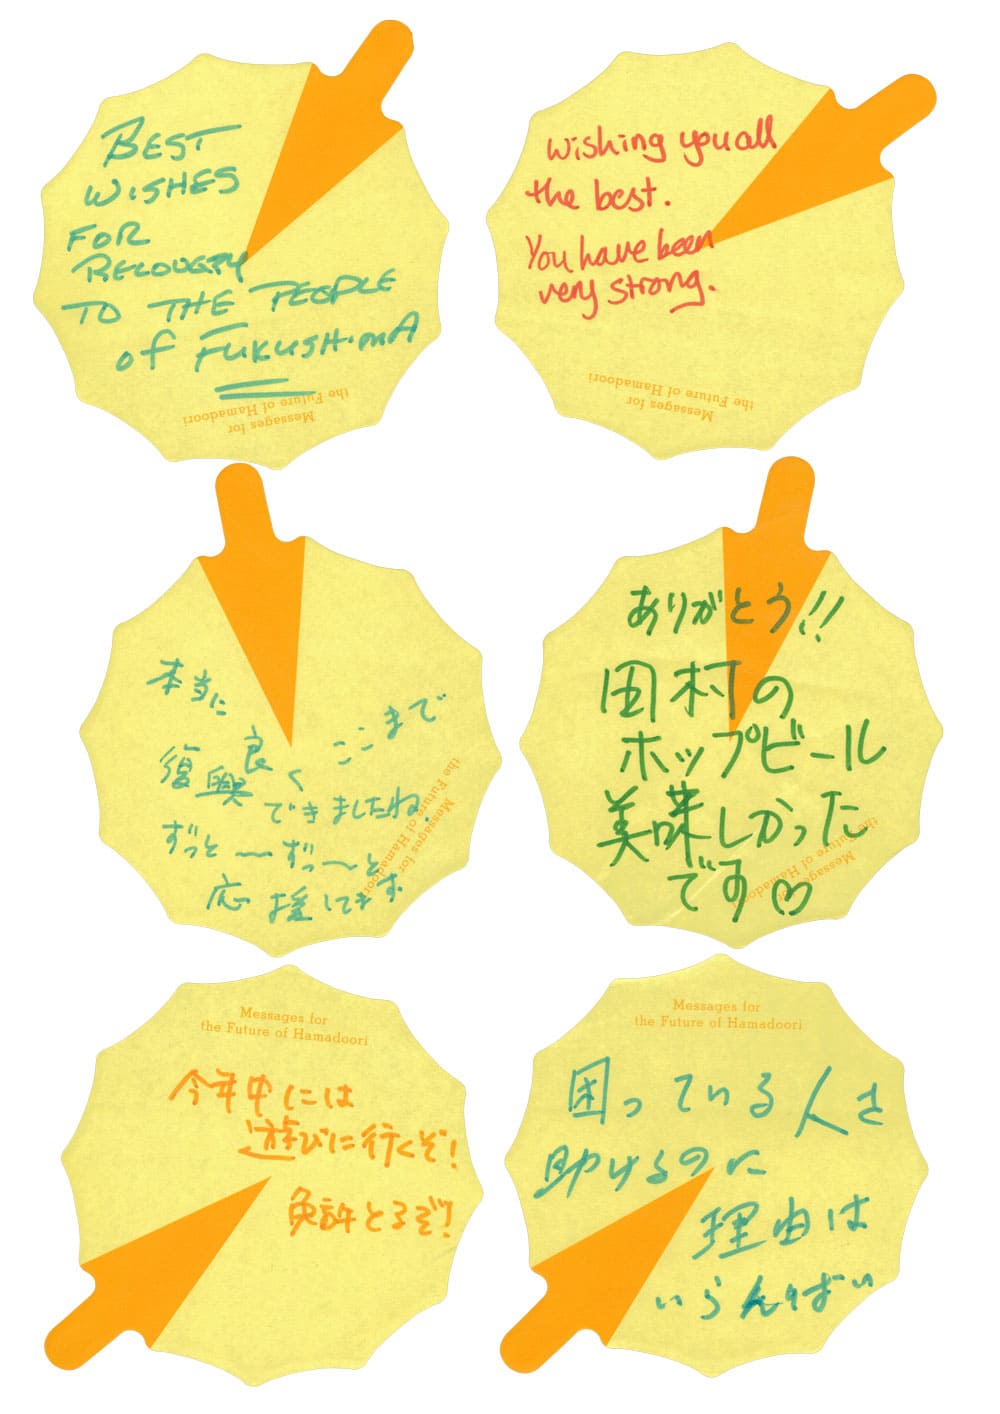 BEST
WISHES
FOR
RECOVERY
TO THE PEOPLE
of FUKUSHIMA
Messages for
the Future of Hamadoori
Wishing you all
the best.
You have been
very strong.
Messages for
the Future of Hamadoori
本当に
良く ここまで
復興 できましたね.
ずっと〜ずっ〜と
応援してます
Messages for
the Future of Hamadoori
ありがとう!!
田村の
ホップビール
美味しかった
です♡
Messages for
the Future of Hamadoori
Messages for
the Future of Hamadoori
今年中には
遊びに行くぞ!
免許とるぞ!
Messages for
the Future of Hamadoori
困っている人を
助けるのに
理由は
いらんばい